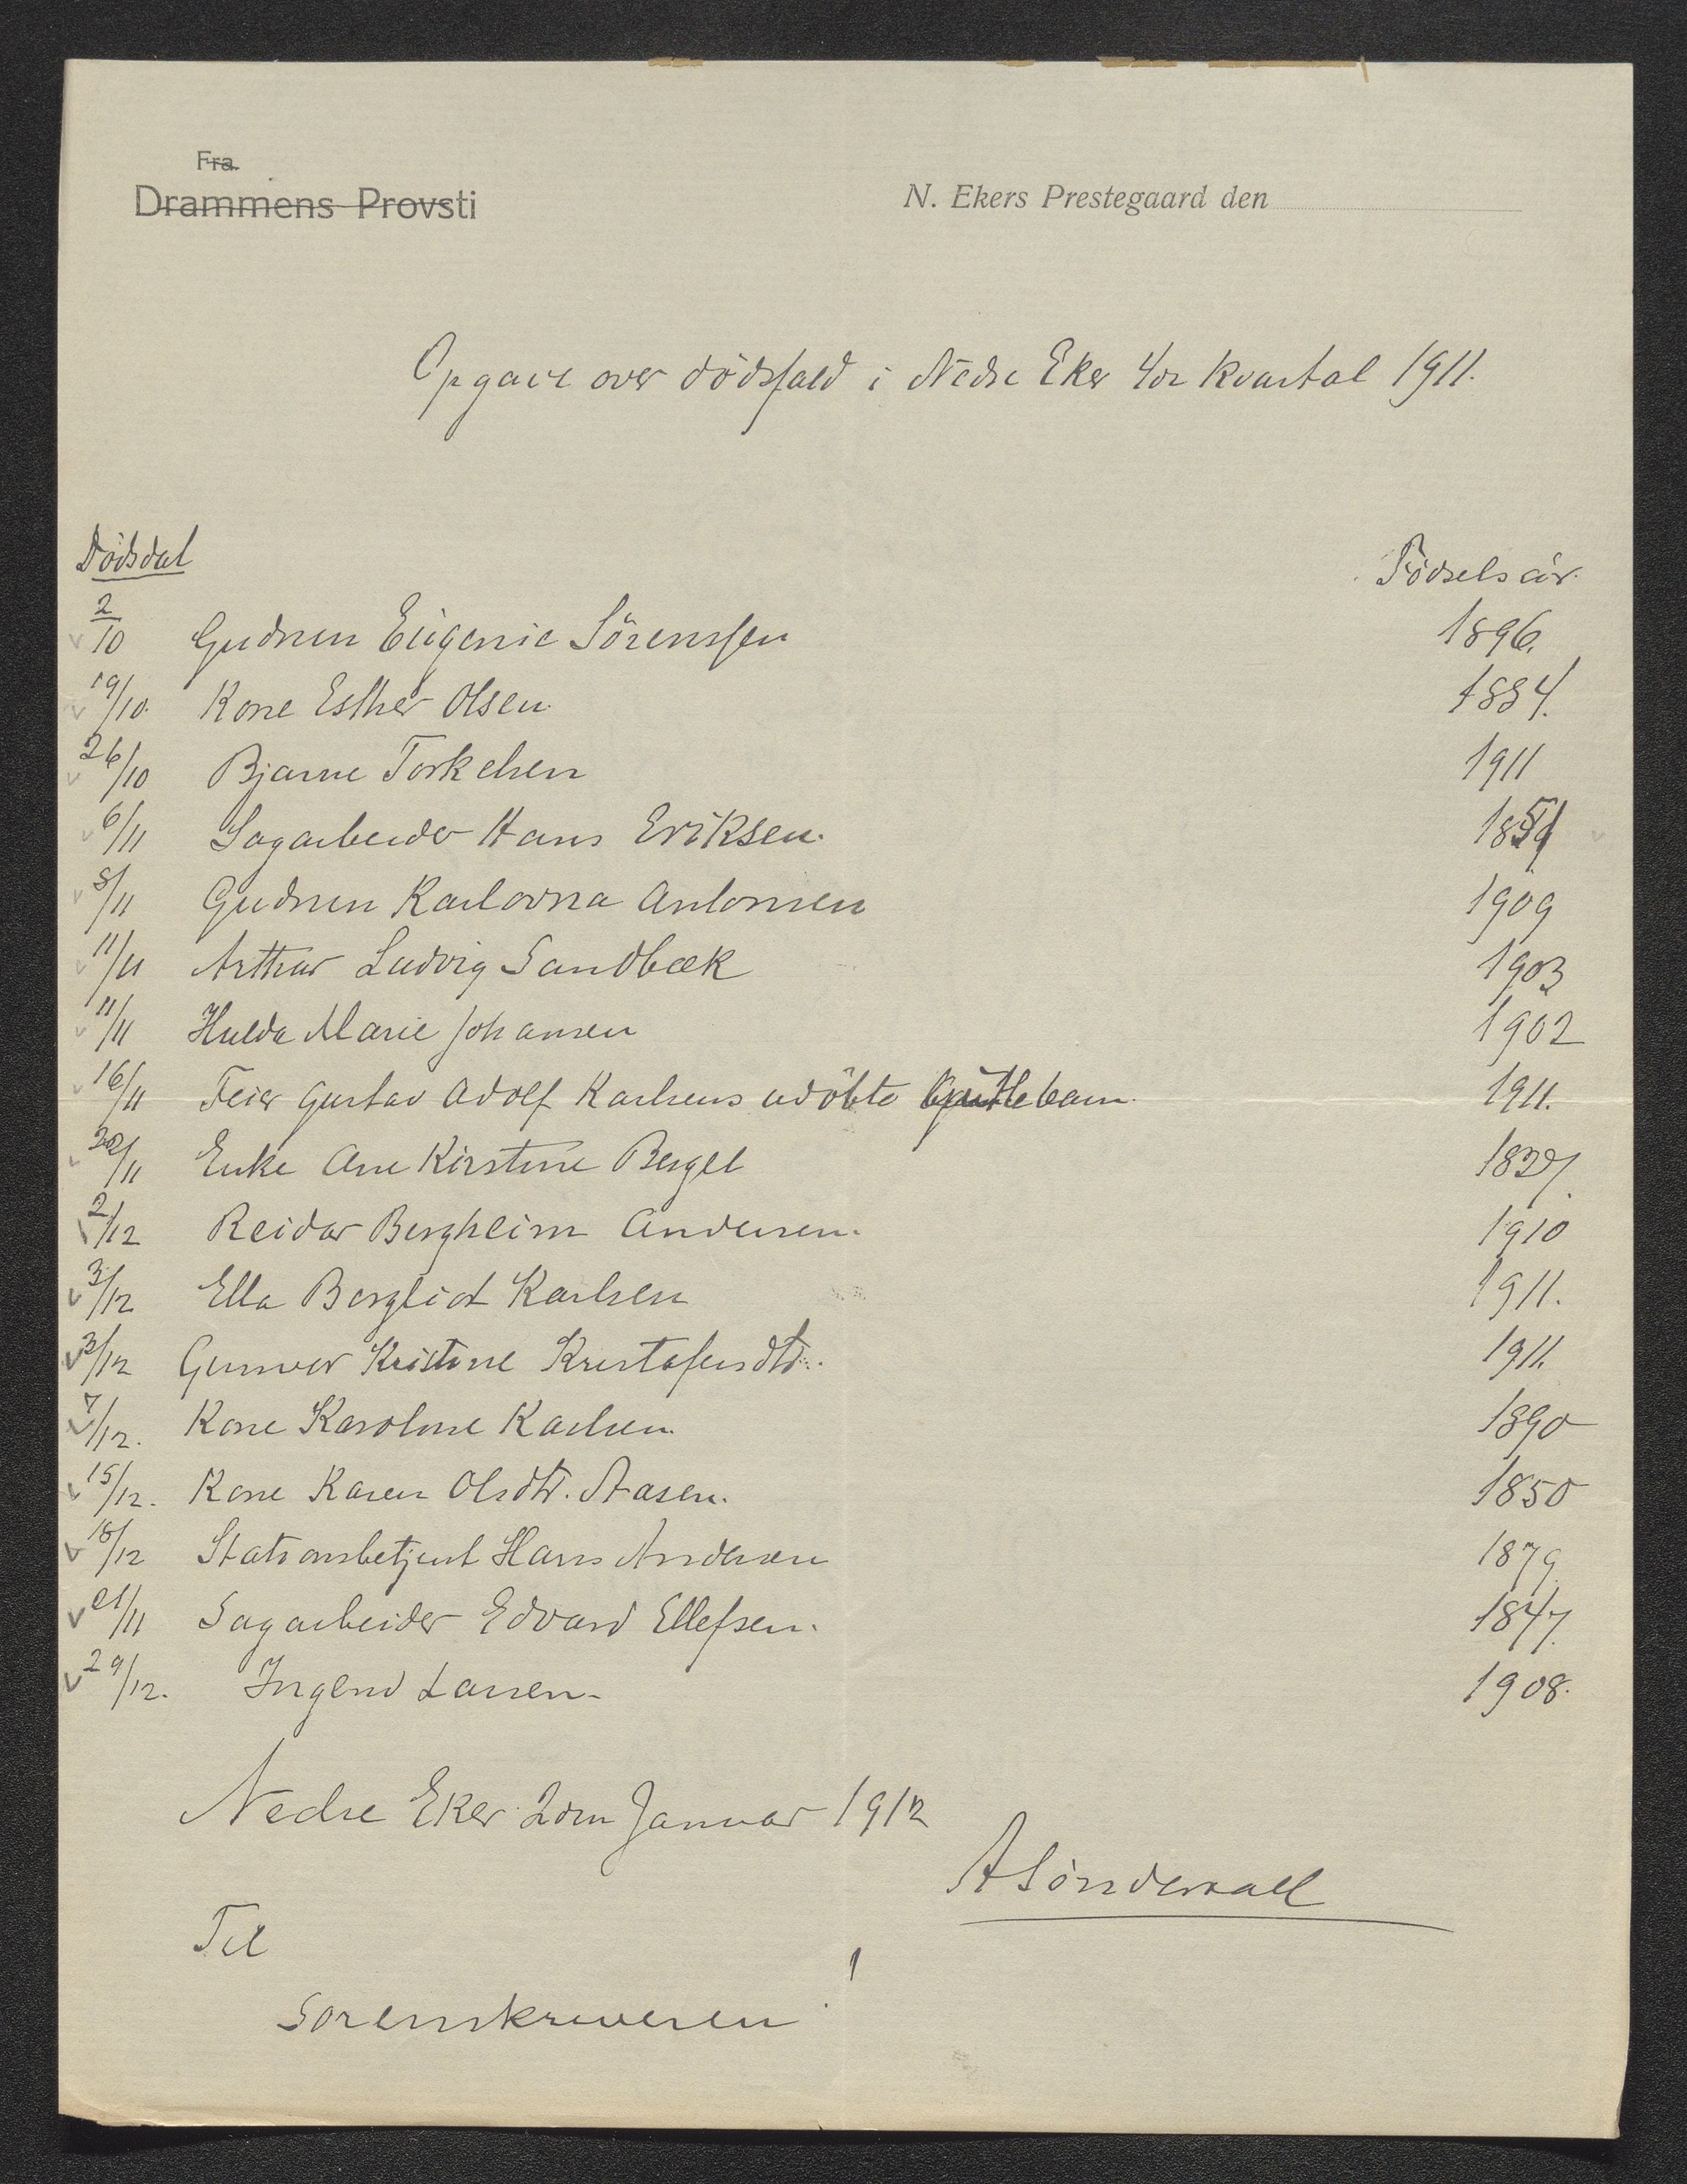 Fra
Drammens Provsti
N. Ekers Prestegaard den
Opgave over dødsfald i Nedre Eker 4de kvartal 1911.
Dødsdat Fødselsår.
2/10 Gudrun Eugenie Sörenssen 1896.
19/10. Kone Esther Olsen. 1884.
26/10 Bjarne Torkelsen 1911
6/11 Sagarbeider Hans Eriksen.
8/11 Gudrun Karlovna Antonsen 1909
11/11 Arthur Ludvig Sandbæk 1903
11/11 Hulda Marie Johansen 1902
16/11 Feier Gustav Adolf Karlsens udöbte barn. 1911.
/11 Enke Ane Kirstine Berget
2/12 Reidar Bergheim Andersen. 1910
3/12 Ella Bergliot Karlsen 1911.
3/12 Gunvor Kristine Kristofersdtr. 1911.
7/12. Kone Karoline Karlsen. 1890
15/12. Kone Karen Olsdtr. Aasen. 1850
18/12 Stationsbetjent Hans Andersen 1879
21/11 Sagarbeider Edvard Ellefsen. 1847.
29/12. Ingerd Larsen. 1908.
Nedre Eker 2den Januar 1912
A Sönderaall
Til
Sorenskriveren